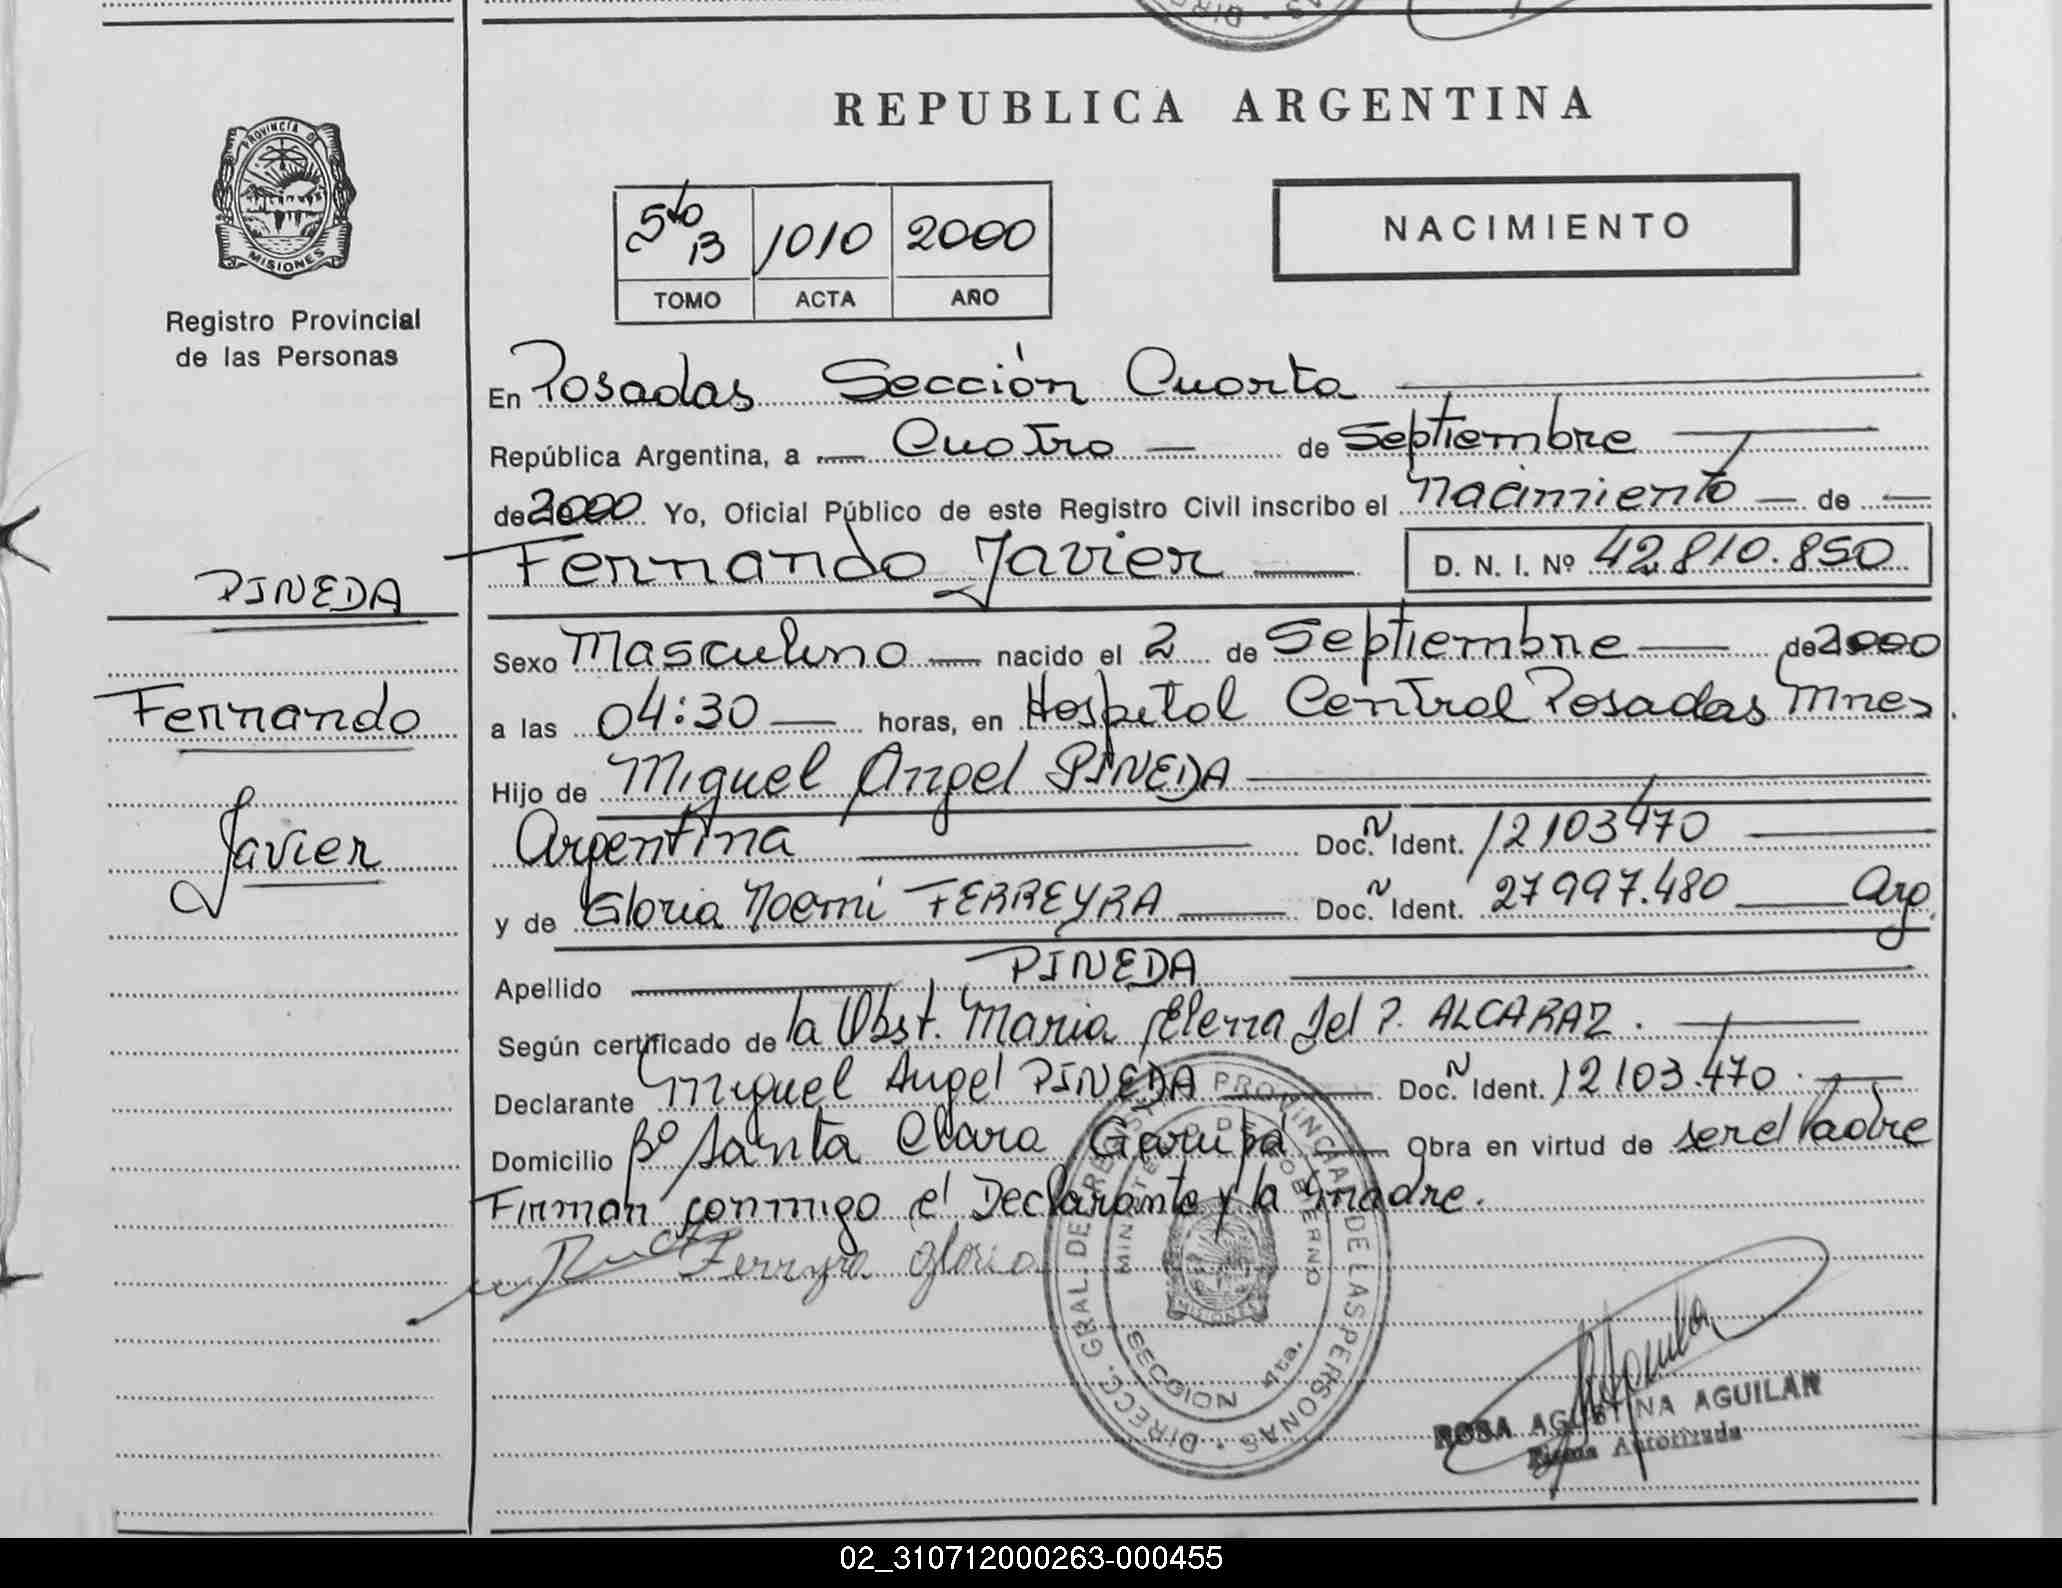 REPUBLICA ARGENTINA
PROVINCIA DE
MISIONES
Registro Provincial
de las Personas
5to B 1010 2000
TOMO ACTA AÑO
NACIMIENTO
En Posadas Sección Cuarta
República Argentina, a Cuatro de Septiembre
de 2000 Yo, Oficial Público de este Registro Civil inscribo el nacimiento de
Fernando Javier D. N. I. Nº 42.810.850
PINEDA
Fernando
Javier
Sexo Masculino nacido el 2 de Septiembre de 2000
a las 04:30 horas, en Hospital Central Posadas Mnes.
Hijo de Miguel Angel PINEDA
Argentina Doc. N Ident. 12103470
y de Gloria Noemí FERREYRA Doc. N Ident. 27997.480 Arg.
Apellido PINEDA
Según certificado de la Obst. Maria Elena del P. ALCARAZ.
Declarante Miguel Angel PINEDA Doc. N Ident. 12103.470.
Domicilio Bº Santa Clara Garupá Obra en virtud de ser el Padre
Firman conmigo el Declarante y la madre.
Ferreyra Gloria
DIRECC. GRAL. DE REGISTRO PROVINCIAL DE LAS PERSONAS
MINISTERIO DE GOBIERNO
MISIONES
SECCION 4ta.
ROSA AGUSTINA AGUILAR
Firma Autorizada
02_310712000263-000455